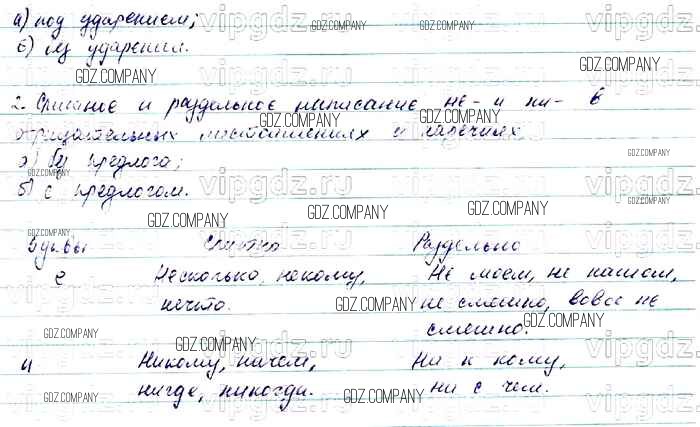 а) под ударением;
б) без ударения.
2. Слитное и раздельное написание не- и ни- в
отрицательных местоимениях и наречиях
а) без предлога;
б) с предлогом.
Буквы Слитно Раздельно
е Несколько, некому, Не моем, не нашем,
нечто. не смешно, вовсе не
смешно.
и Никому, ничем, Ни к кому,
нигде, никогда. ни с чем.
GDZ.COMPANY
vipgdz.ru